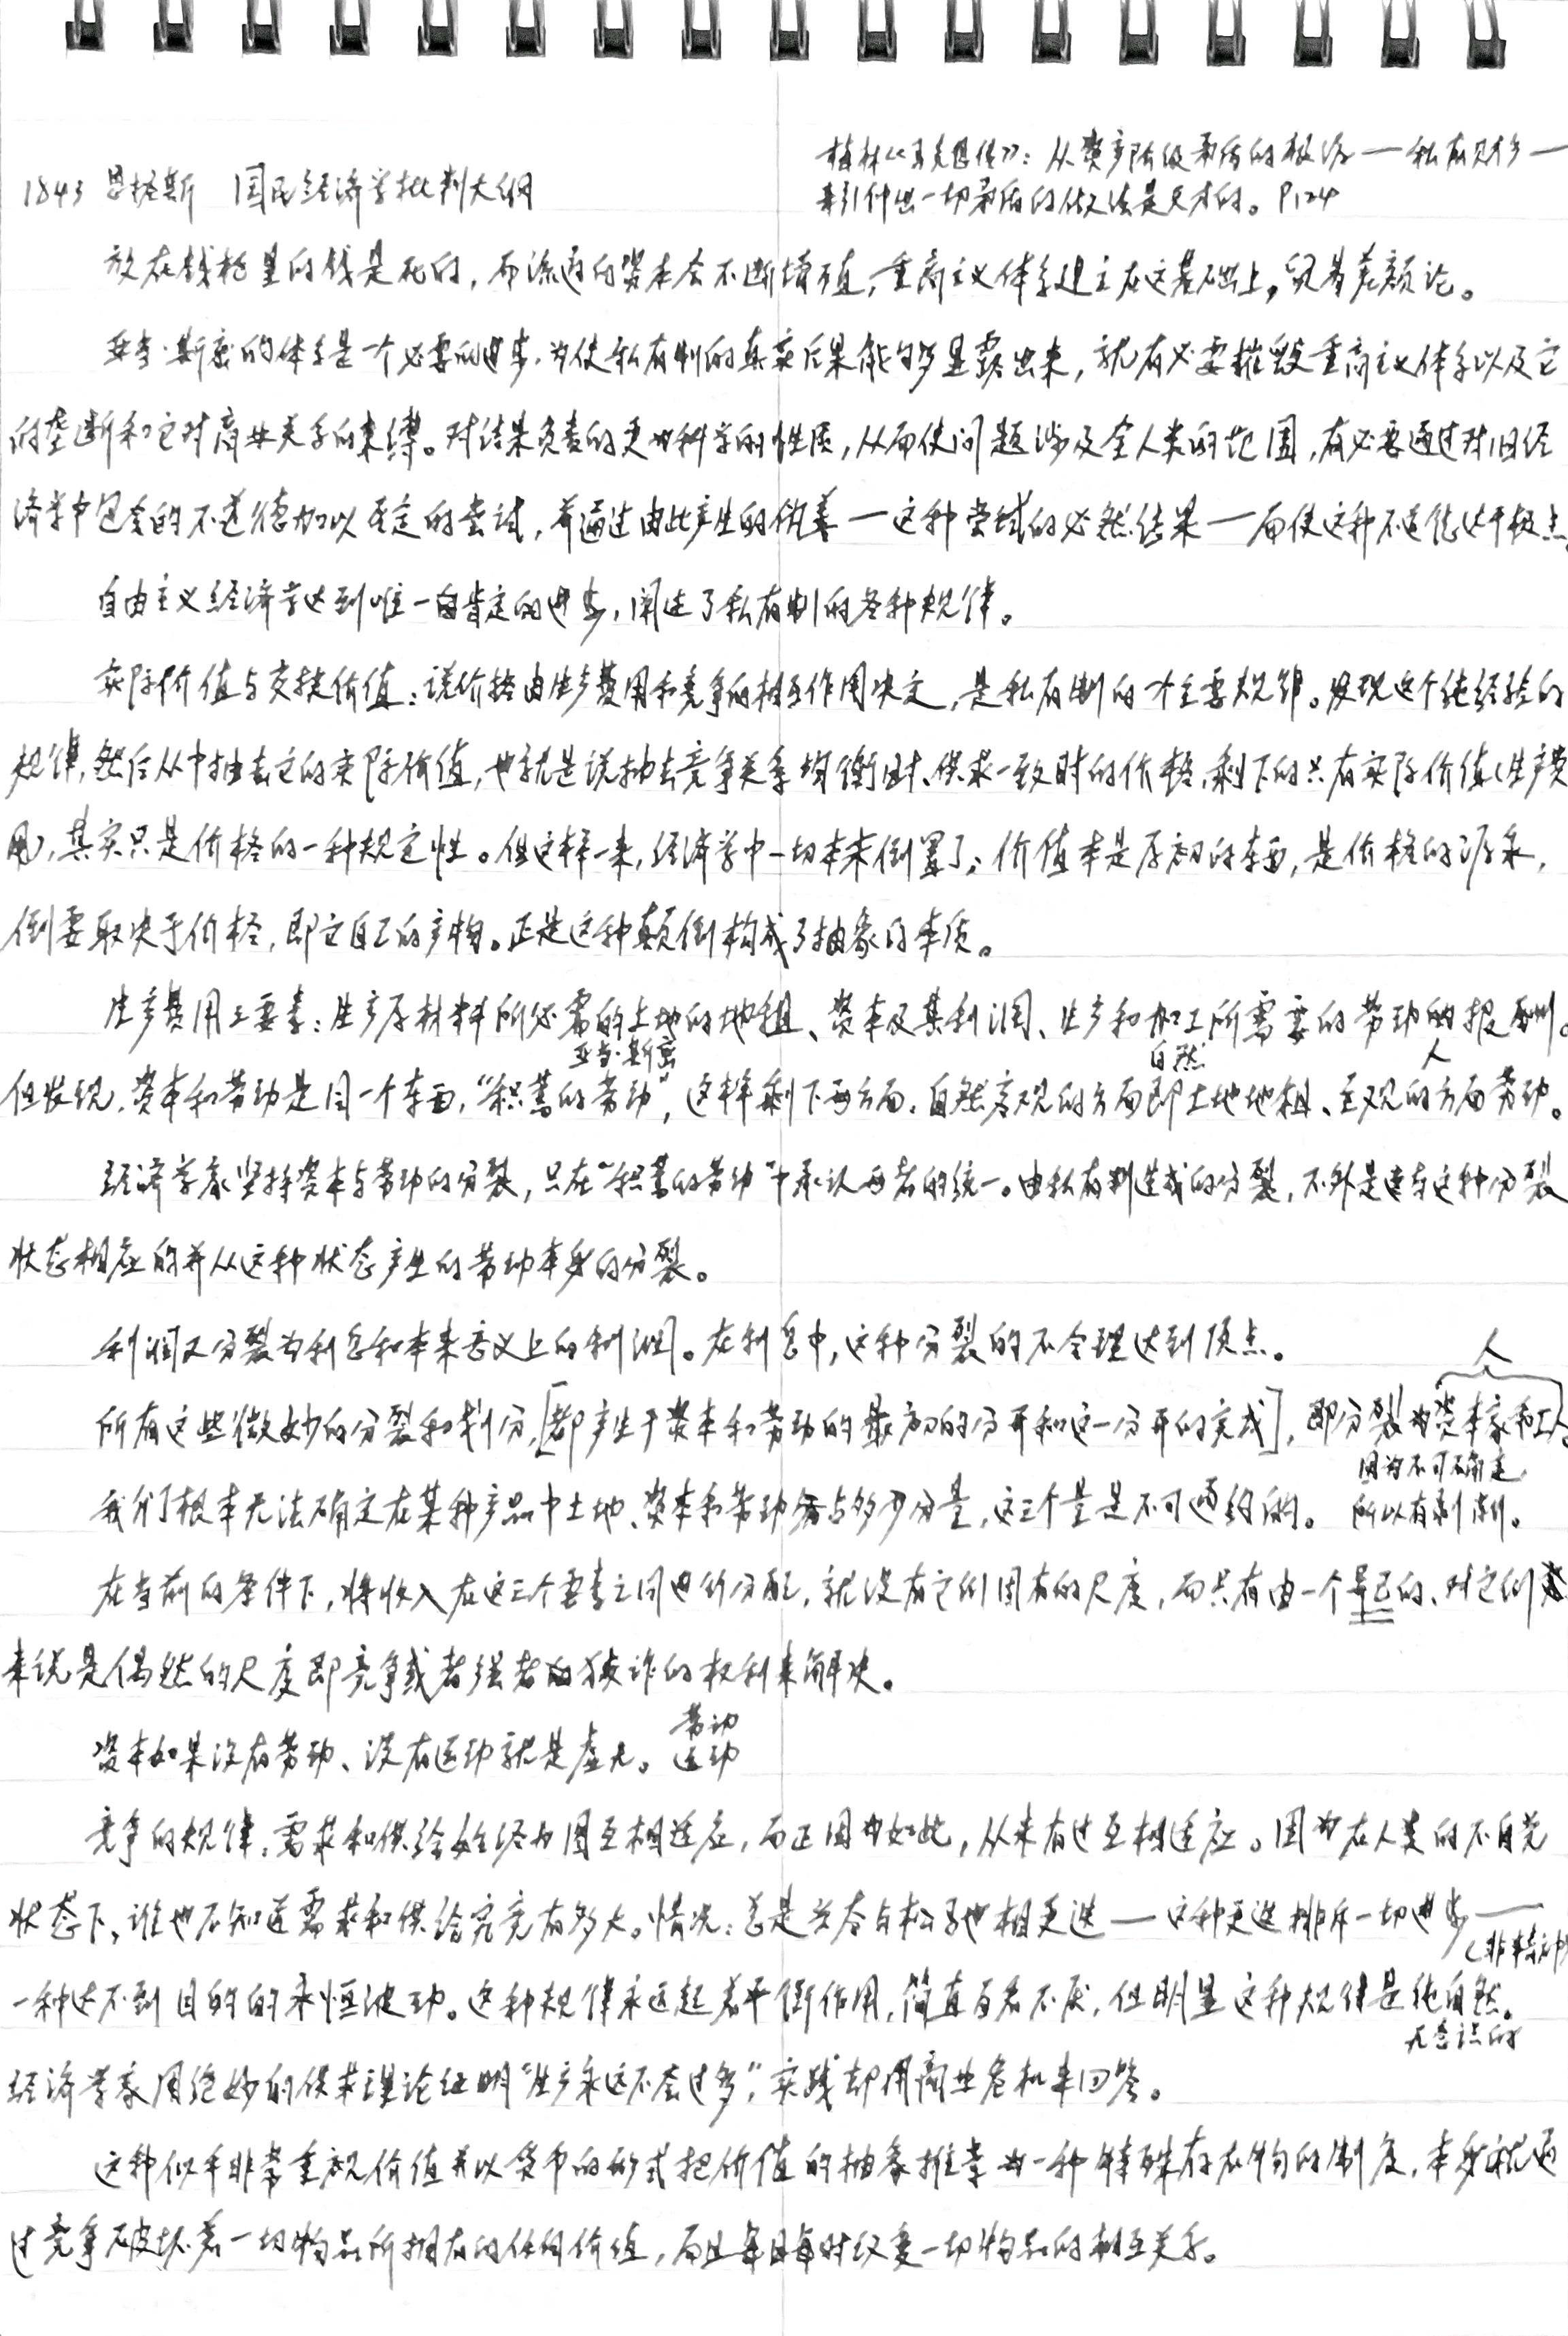 梅林《马克思传》：从资产阶级矛盾的根源——私有财产——
1843 恩格斯 国民经济学批判大纲
来引伸出一切矛盾的做法是天才的。P124
放在钱柜里的钱是死的，而流通的资本会不断增值，重商主义体系建立在这基础上，贸易差额论。
亚当·斯密的体系是一个必要的进步，为使私有制的真实后果能够显露出来，就有必要摧毁重商主义体系以及它
的垄断和它对商业关系的束缚。对结果负责的更为科学的性质，从而使问题涉及全人类的范围，有必要通过对旧经
济学中包含的不道德加以否定的尝试，并通过由此产生的伪善—这种尝试的必然结果—而使这种不道德达于极点。
自由主义经济学达到唯一的肯定的进步，阐述了私有制的各种规律。
实际价值与交换价值：说价格由生产费用和竞争的相互作用决定，是私有制的一个主要规律。发现这个纯经验的
规律，然后从中抽去它的实际价值，也就是说抽去竞争关系均衡时、供求一致时的价格，剩下的只有实际价值（生产费
用），其实只是价格的一种规定性。但这样一来，经济学中一切本末倒置了：价值本是原初的东西，是价格的源泉，
倒要取决于价格，即它自己的产物。正是这种颠倒构成了抽象的本质。
生产费用三要素：生产原材料所必需的土地的地租、资本及其利润、生产和加工所需要的劳动的报酬。
亚当·斯密 自然 人
但发现，资本和劳动是同一个东西，“积蓄的劳动”，这样剩下两方面，自然客观的方面即土地地租、主观的方面劳动。
经济学家坚持资本与劳动的分裂，只在“积蓄的劳动”中承认两者的统一。由私有制造成的分裂，不外是连与这种分裂
状态相应的并从这种状态产生的劳动本身的分裂。
利润又分裂为利息和本来意义上的利润。在利息中，这种分裂的不合理达到顶点。
人
所有这些微妙的分裂和划分，[都产生于资本和劳动的最初的分开和这一分开的完成]，即分裂为资本家和工人。
因为不可确定，
我们根本无法确定在某种产品中土地、资本和劳动各占多少分量，这三个量是不可通约的。 所以有剥削。
在当前的条件下，将收入在这三个要素之间进行分配，就没有它们固有的尺度，而只有由一个异己的、对它们
来说是偶然的尺度即竞争或者强者的狡诈的权利来解决。
劳动
资本如果没有劳动、没有运动就是虚无。 运动
竞争的规律：需求和供给始终力图互相适应，而正因为如此，从未有过互相适应。因为在人类的不自觉
状态下，谁也不知道需求和供给究竟有多大。情况：总是兴奋与松弛相更迭——这种更迭排斥一切进步——
一种达不到目的的永恒波动。这种规律永远起着平衡作用，简直百看不厌，但明显这种规律是纯自然。
无意识的
经济学家用绝妙的供求理论证明“生产永远不会过多”，实践却用商业危机来回答。
这种似乎非常重视价值并以货币的形式把价值的抽象推崇为一种特殊存在物的制度，本身就通
过竞争破坏着一切物品所拥有的任何价值，而且每日每时改变一切物品的相互关系。